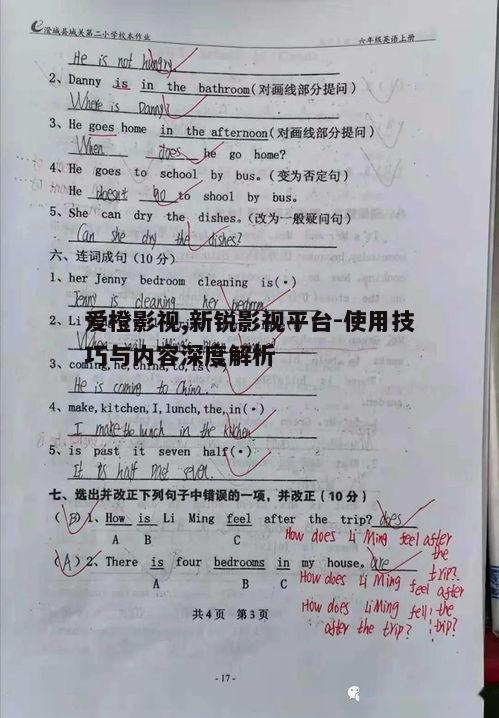 澄城县城关第二小学校本作业 六年级英语上册
He is not hungry
2、Danny is in the bathroom(对画线部分提问)
Where is Danny?
3、He goes home in the afternoon(对画线部分提问)
When does he go home?
4、He goes to school by bus。(变为否定句)
He doesn't go to shool by bus.
5、She can dry the dishes。(改为一般疑问句)
Can she dry the dishes?
六、连词成句(10分)
1、her Jenny bedroom cleaning is(•)
Jenny is cleaning her bedroom
爱橙影视,新锐影视平台-使用技
巧与内容深度解析
2、Li
When will
3、coming,he,China,to,is(
He is coming to China.
4、make,kitchen,I,lunch,the,in(•)
I make the lunch in the kitchen
5、is past it seven half(•)
It is half past seven.
七、选出并改正下列句子中错误的一项，并改正(10分)
(B)1、How is Li Ming feel after the trip? does
A B C
How does Li Ming feel after
the
trip?
(A)2、There is four bedrooms in my house. are
A B C
How does Li Ming feel after
the
trip?
How does Li Ming fell
after the trip?
共4页 第3页
-17-